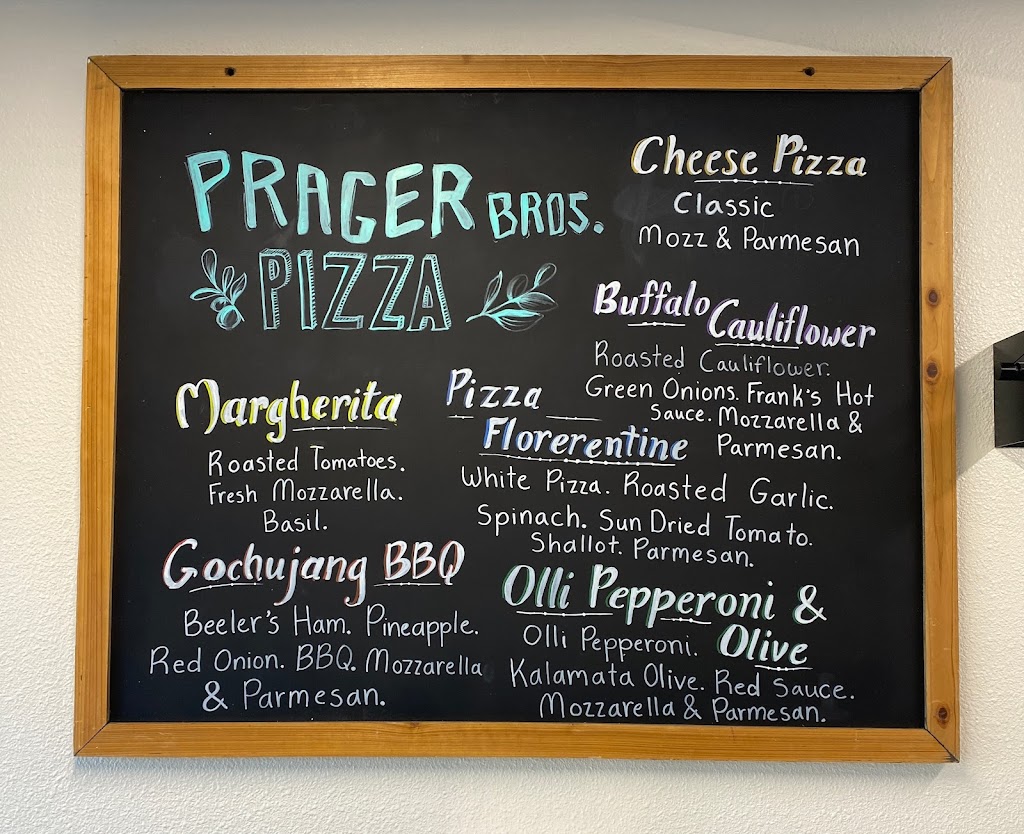 PRAGER BROS.
PIZZA
Cheese Pizza
Classic
Mozz & Parmesan
Buffalo Cauliflower
Roasted Cauliflower.
Green Onions. Frank's Hot
Sauce. Mozzarella &
Parmesan.
Margherita
Roasted Tomatoes.
Fresh Mozzarella.
Basil.
Pizza
Florerentine
White Pizza. Roasted Garlic.
Spinach. Sun Dried Tomato.
Shallot. Parmesan.
Gochujang BBQ
Beeler's Ham. Pineapple.
Red Onion. BBQ. Mozzarella
& Parmesan.
Olli Pepperoni &
Olive
Olli Pepperoni.
Kalamata Olive. Red Sauce.
Mozzarella & Parmesan.